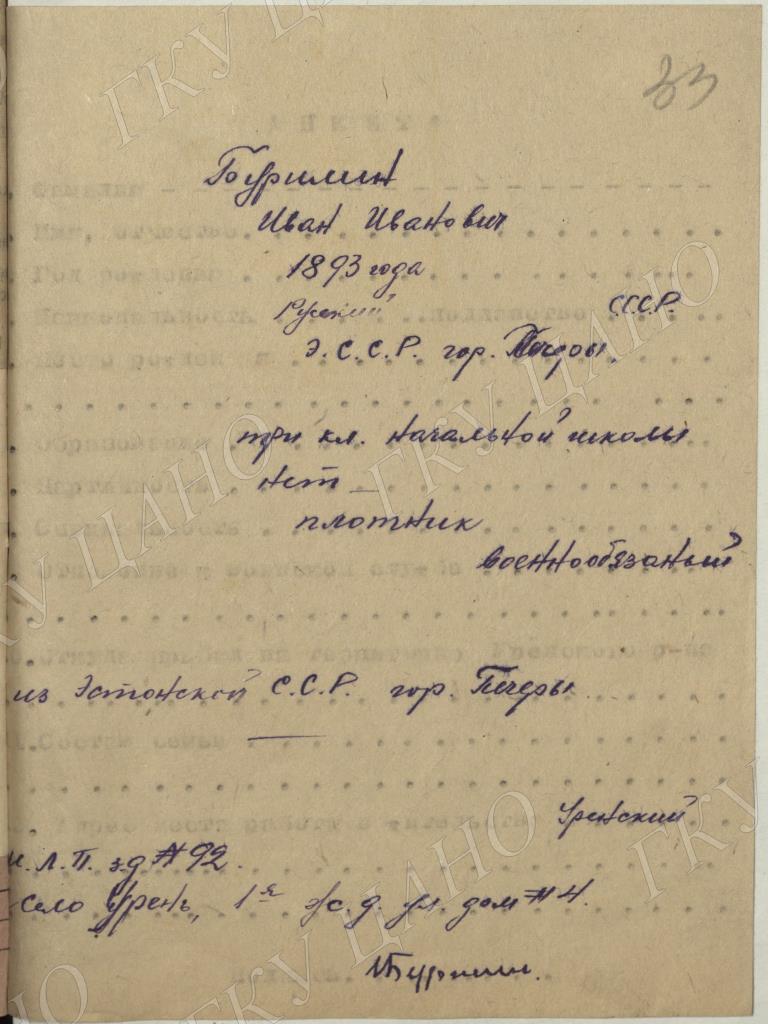 33
АНКЕТА
Фамилия Буримин
Имя, отчество Иван Иванович
Год рождения 1893 года
Национальность Русский подданство С.С.С.Р.
Место рождения Э.С.С.Р. гор. Печеры.
Образование три кл. начальной школы
Партийность нет
плотник
Отношение к воинской службе военнообязаный
Откуда прибыл на территорию Уренского р-на
из Эстонской С.С.Р. гор. Печеры.
Состав семьи —
Адрес места работы и жительства Уренский
Л.П. з-д № 92.
село Урень, 1я ж.д. ул. дом № 4.
Подпись
ГКУ ЦАНО